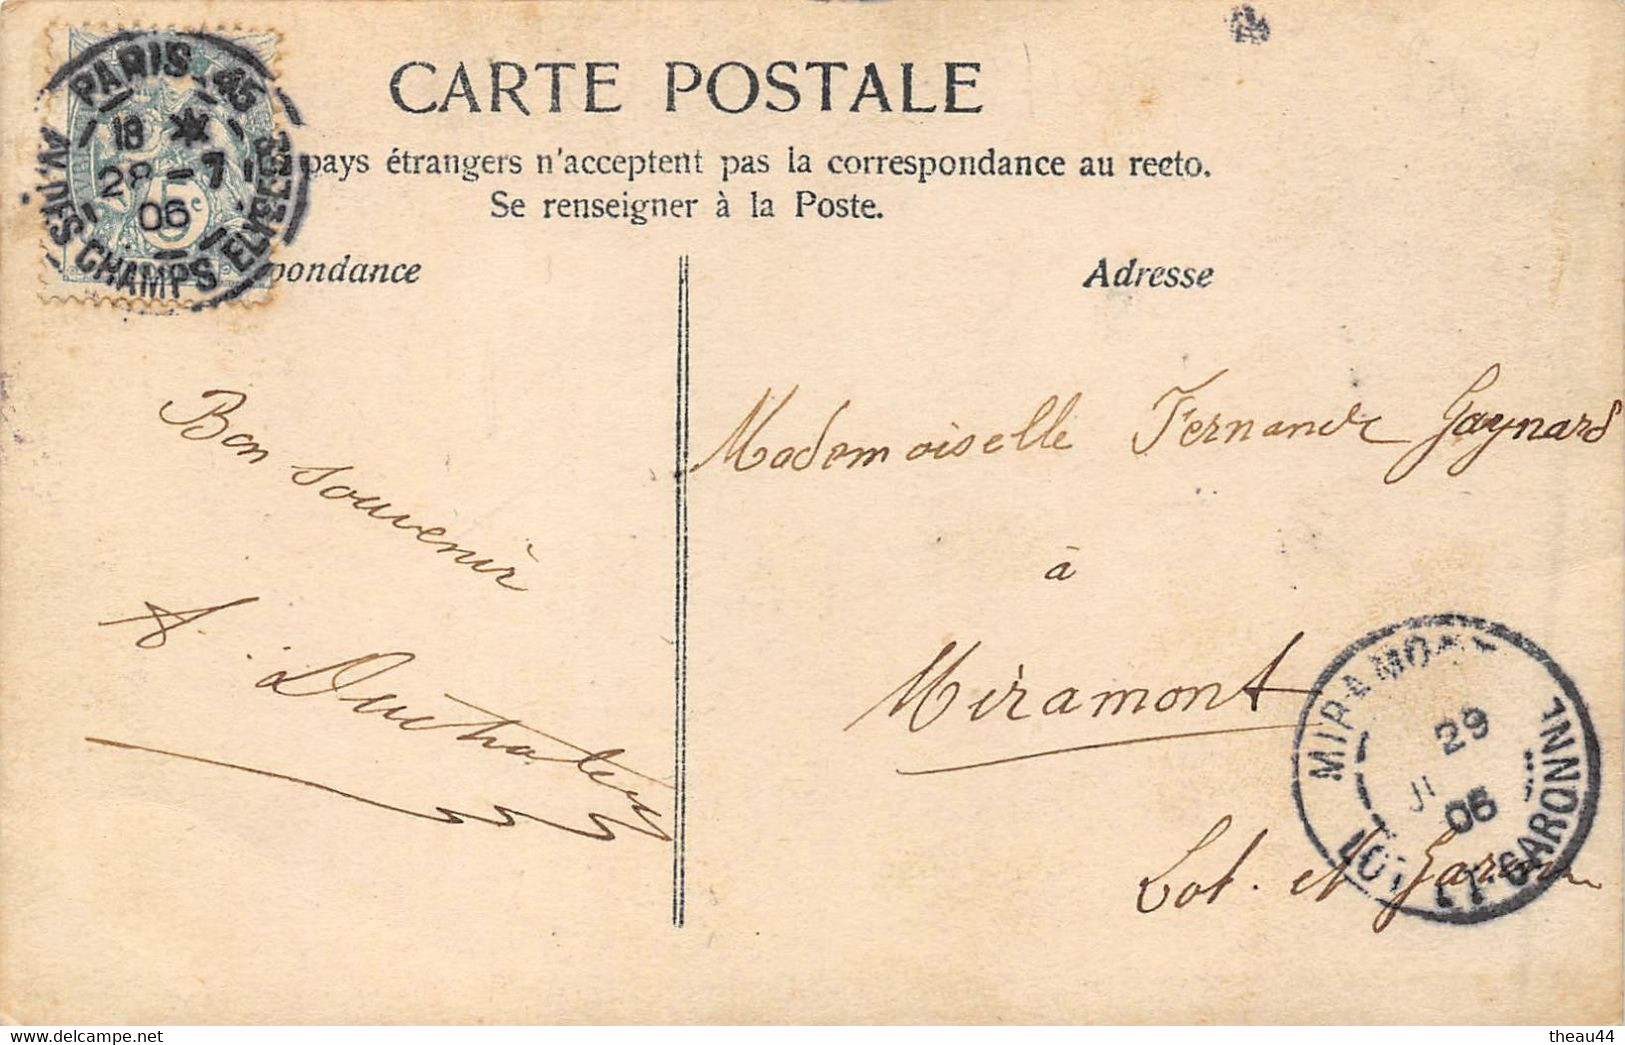 CARTE POSTALE
pays étrangers n'acceptent pas la correspondance au recto.
Se renseigner à la Poste.
pondance
Adresse
PARIS 45
18 *
28 - 7
06
AV. DES CHAMPS ELYSEES
5c
Bon souvenir
Mademoiselle Fernande Gaynard
à
Miramont
Lot. et Garonne
MIRAMONT
29
06
LOT ET GARONNE
www.delcampe.net
theau44